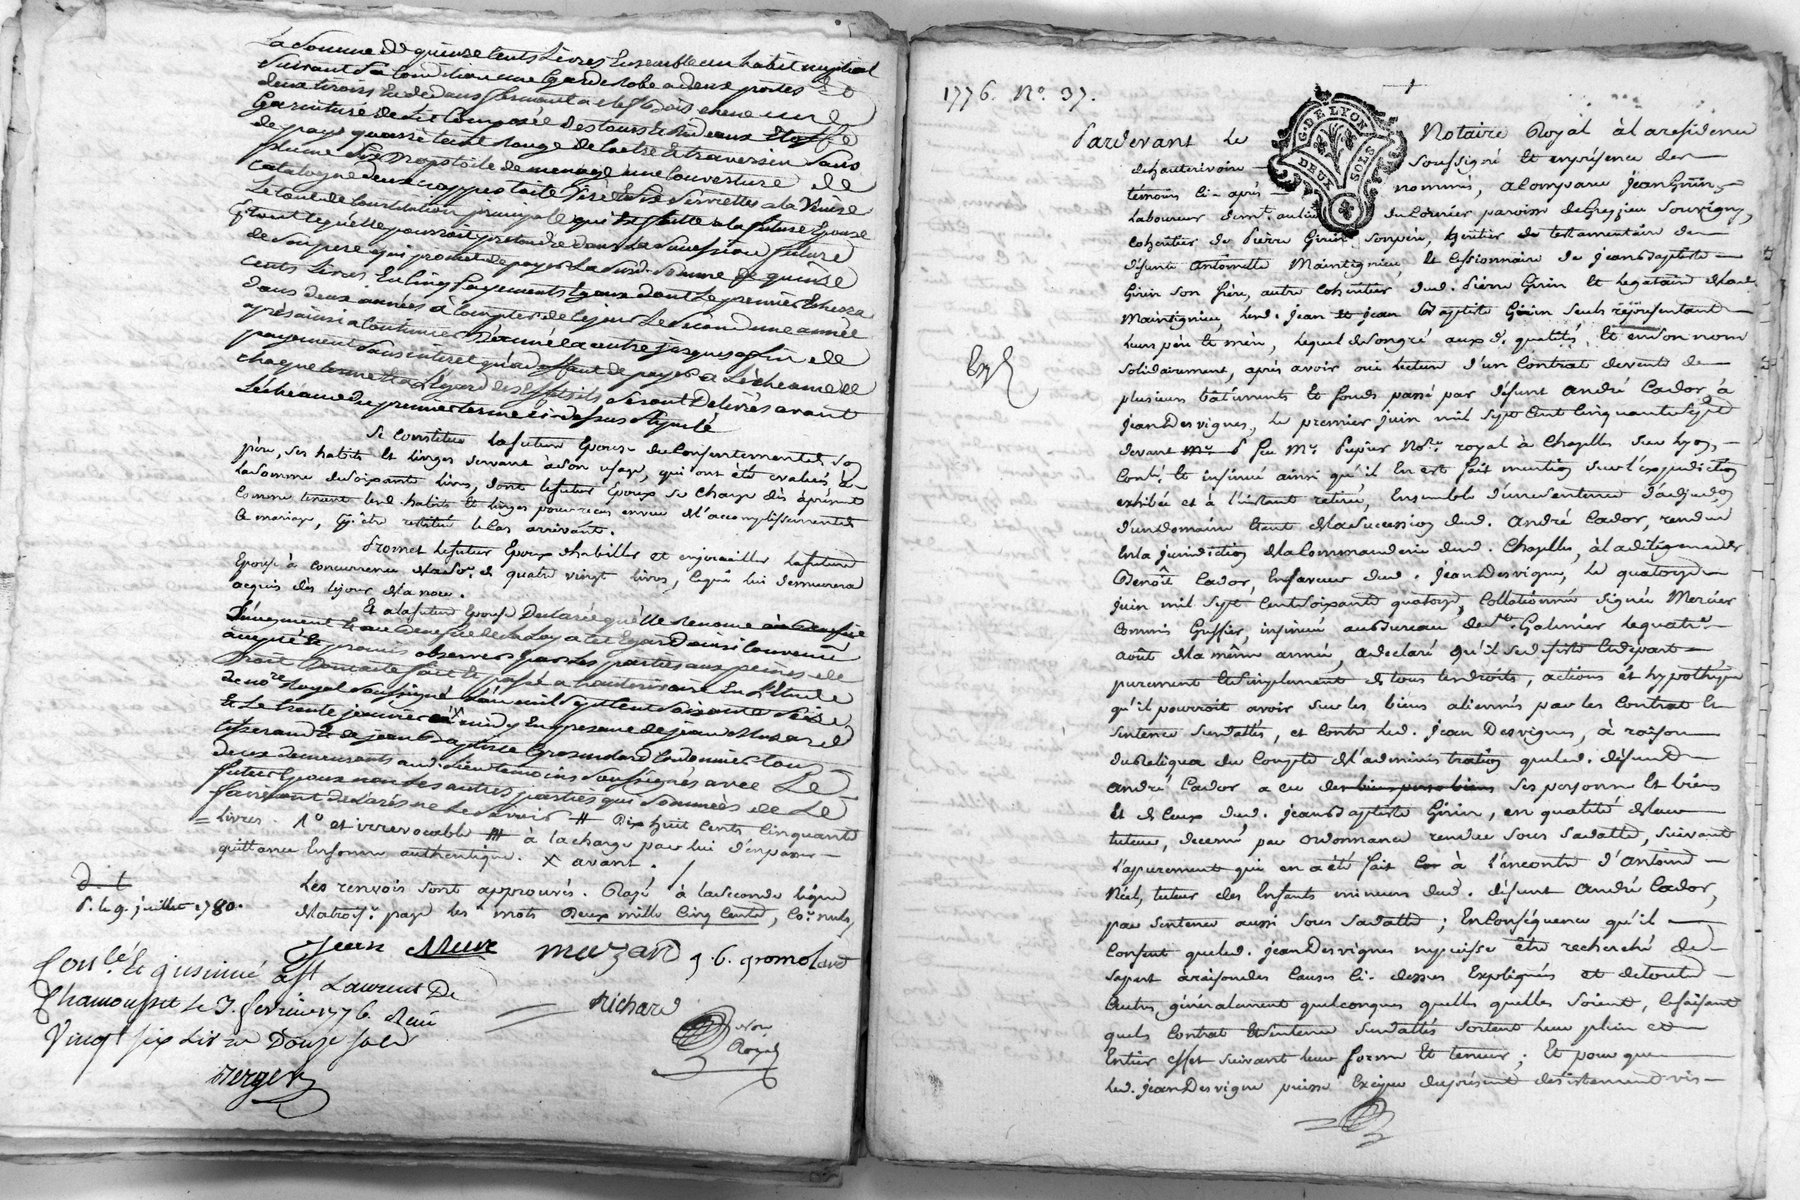 La somme de quinze cents Livres Ensemble un habit nuptial
suivant sa Condition une Garderobe a deux portes et
deux tiroirs En dedans fermant a clef bois chene une
Garniture de Lit Composée des tours de Rideaux Etoffe
de pays quarré teint Rouge de Coëtre et traversin sans
plume Six Draps toile de menage une Couverture de
Catalogne deux nappes toile Six Serviettes a la Venise
Le tout de Constitution principale qui Est faitte a la future Epouse
tout ce qu'elle pourroit pretendre dans La Succession future
de Son pere ayant promis de payer La Susd. Somme de quinze
cents Livres En Cinq payements Egaux dont Le premier Echerra
dans deux années à Compter de Ce jour Le Second une année
après ainsi a Continuer D'année en autre jusques a fin de
payement Sans interet qu'au deffaut de payer a L'écheance de
chaque terme Et a L'égard des Effets ils Seront Delivrés avant
L'écheance du premier terme Ci dessus Stipulé
Se Constitue la future Epouse du Consentement de Son
père, Ses habits Et linges servant a son usage, qui ont été évalués à
la somme de soixante livres, dont le futur Epoux se Charge dès à présent
Comme tenant lesd. habits Et linges pour reçus en vue de l'accomplissement de
Ce mariage, le Cas arrivant.
Promet le futur Epoux d'habiller et enjoailler la future
Epouse à concurrence de la So.e de quatre vingt livres, lequel lui demeurera
acquis dès le jour de la noce.
Et a la future Epouse Declaré qu'elle Renonce
a cet Egard ainsi Convenu
accepté Et promis observer par Les parties aux peines de
Droit Dont acte fait Et passé a hauterivoire En L'étude
du no.re Royal Soussigné L'an mil Sept cent Soixante Seize
Et Le trente janvier apres midy En presence de jean Mazard
tisserand Et de jean Baptiste Gromolard Cordonnier tous
deux demeurants aud. Lieu temoins Soussignés avec Le
futur Epoux non Les autres parties qui Sommées de Le
faire ont declarés ne Le Savoir # Dix huit Cents Cinquante
= livres. 1° et irrevocable ## à la charge par lui d'en passer
quittance En forme authentique. X avant.
Les renvois sont approuvés. Rayé à la seconde ligne
de la trois.e page les mots Deux mille Cinq Cents, Co.e nuls
d. t
P. le 9. juillet 1780.
Jean Meur mazard j. b. gromolard
Con.lé Et jnsinué a St Laurent De
Chamousset le 3. fevrier 1776 Recu
Vingt six Livres Douze Sols
Berger
Richard
No.re
Royal
1776. N°. 37.
G. DE LYON
DEUX SOLS
Pardevant le Notaire Royal à la residence
de hauterivoire Soussigné Et en présence des
témoins Ci-après nommés, a Comparu Jean Girin,
laboureur dem.t au lieu du Cornier paroisse de Grezieu Souvigny,
Cohéritier de Pierre Girin Son père, héritier testamentaire de
défunte Antoinette Maintignieu, Et Cessionnaire de Jean Baptiste
Girin Son frère, autre Cohéritier dud. Pierre Girin Et legataire de lad.
Maintigneu, lesd. Jean et Jean Baptiste Girin Seuls représentant
leurs père Et mère, lequel de son gré aux d. qualités, Et en son nom
Solidairement, après avoir oui lecture d'un Contrat de vente de
plusieurs bâtiments Et fonds passé par défunt André Cador à
Jean Desvignes, le premier juin mil Sept Cent Cinquante Sept
devant feu M.e Pupier No.re royal à Chazelles Sur Lyon,
Con.lé Et insinué ainsi qu'il En est fait mention Sur l'expédition
exhibée et à l'instant retirée, Ensemble d'une Sentence d'adjud.on
d'un Domaine Etant de la Succession dud. André Cador, rendue
En la jurisdiction de la Commanderie dud. Chazelles, à la diligence de
Benoît Cador, En faveur dud. Jean Desvigne, le quatorze
juin mil Sept Cent Soixante quatorze, Collationnée Signée Mercier
Commis Greffier, insinuée au bureau de St. Galmier le quatre
août de la même année, a declaré qu'il Se desiste Et départ
purement Et Simplement de tous les droits, actions et hypothèques
qu'il pourroit avoir Sur les biens aliennés par les Contrat Et
Sentence Susdattés, et Contre led. Jean Desvignes, à raison
du Reliqua du Compte de l'administration que led. défunt
André Cador a eu de Ses personne Et biens
Et de Ceux dud. Jean Baptiste Girin, en qualité de leur
tuteur, decerné par Ordonnance rendue Sous Sa datte, Suivant
l'apurement qui en a été fait à l'encontre d'Antoine
Néel, tuteur des Enfants mineurs dud. défunt André Cador,
par Sentence aussi Sous Sa datte ; En Conséquence qu'il
Consent que led. Jean Desvignes ne puisse être recherché de
Sa part à raison des Causes Ci-dessus Expliquées et de toutes
Autres généralement quelconques quelles quelles Soient, Consentant
quels Contrat Et Sentence Susdattés Sortent leur plein et
Entier effet Suivant leur forme Et teneur ; Et pour que
led. Jean Desvigne puisse Exciper du présent desistement vis-